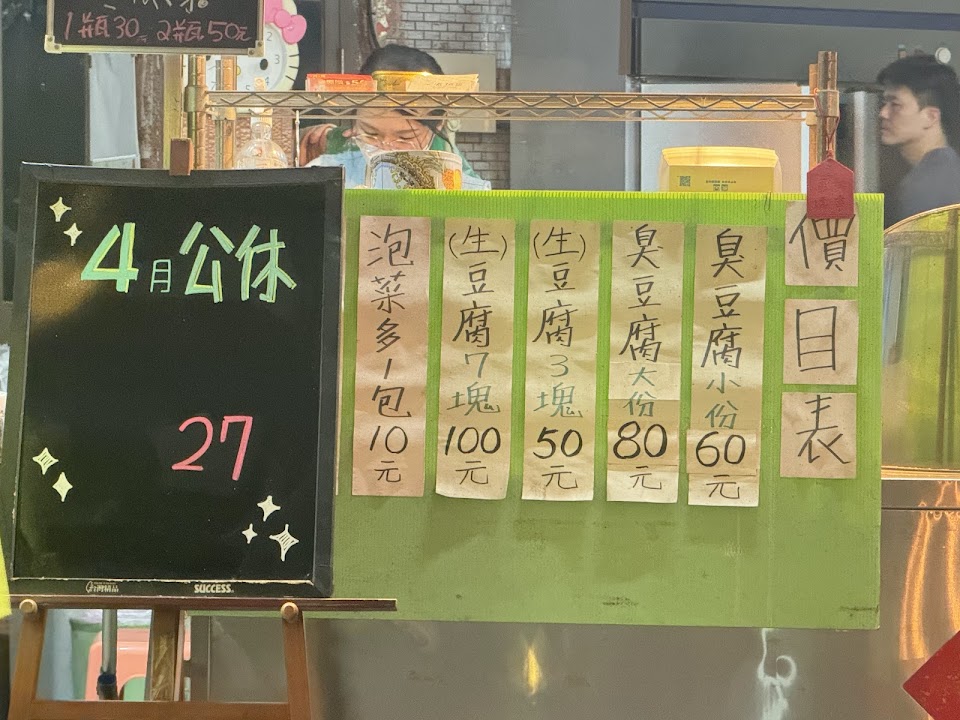 1瓶30元 2瓶50元
4月公休
27
SUCCESS
價目表
臭豆腐小份60元
臭豆腐大份80元
(生)豆腐3塊50元
(生)豆腐7塊100元
泡菜多1包10元